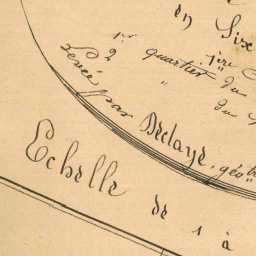 en Six
1er quartier du
2 " du
Levée par Declaye, géo
Echelle de 1 à